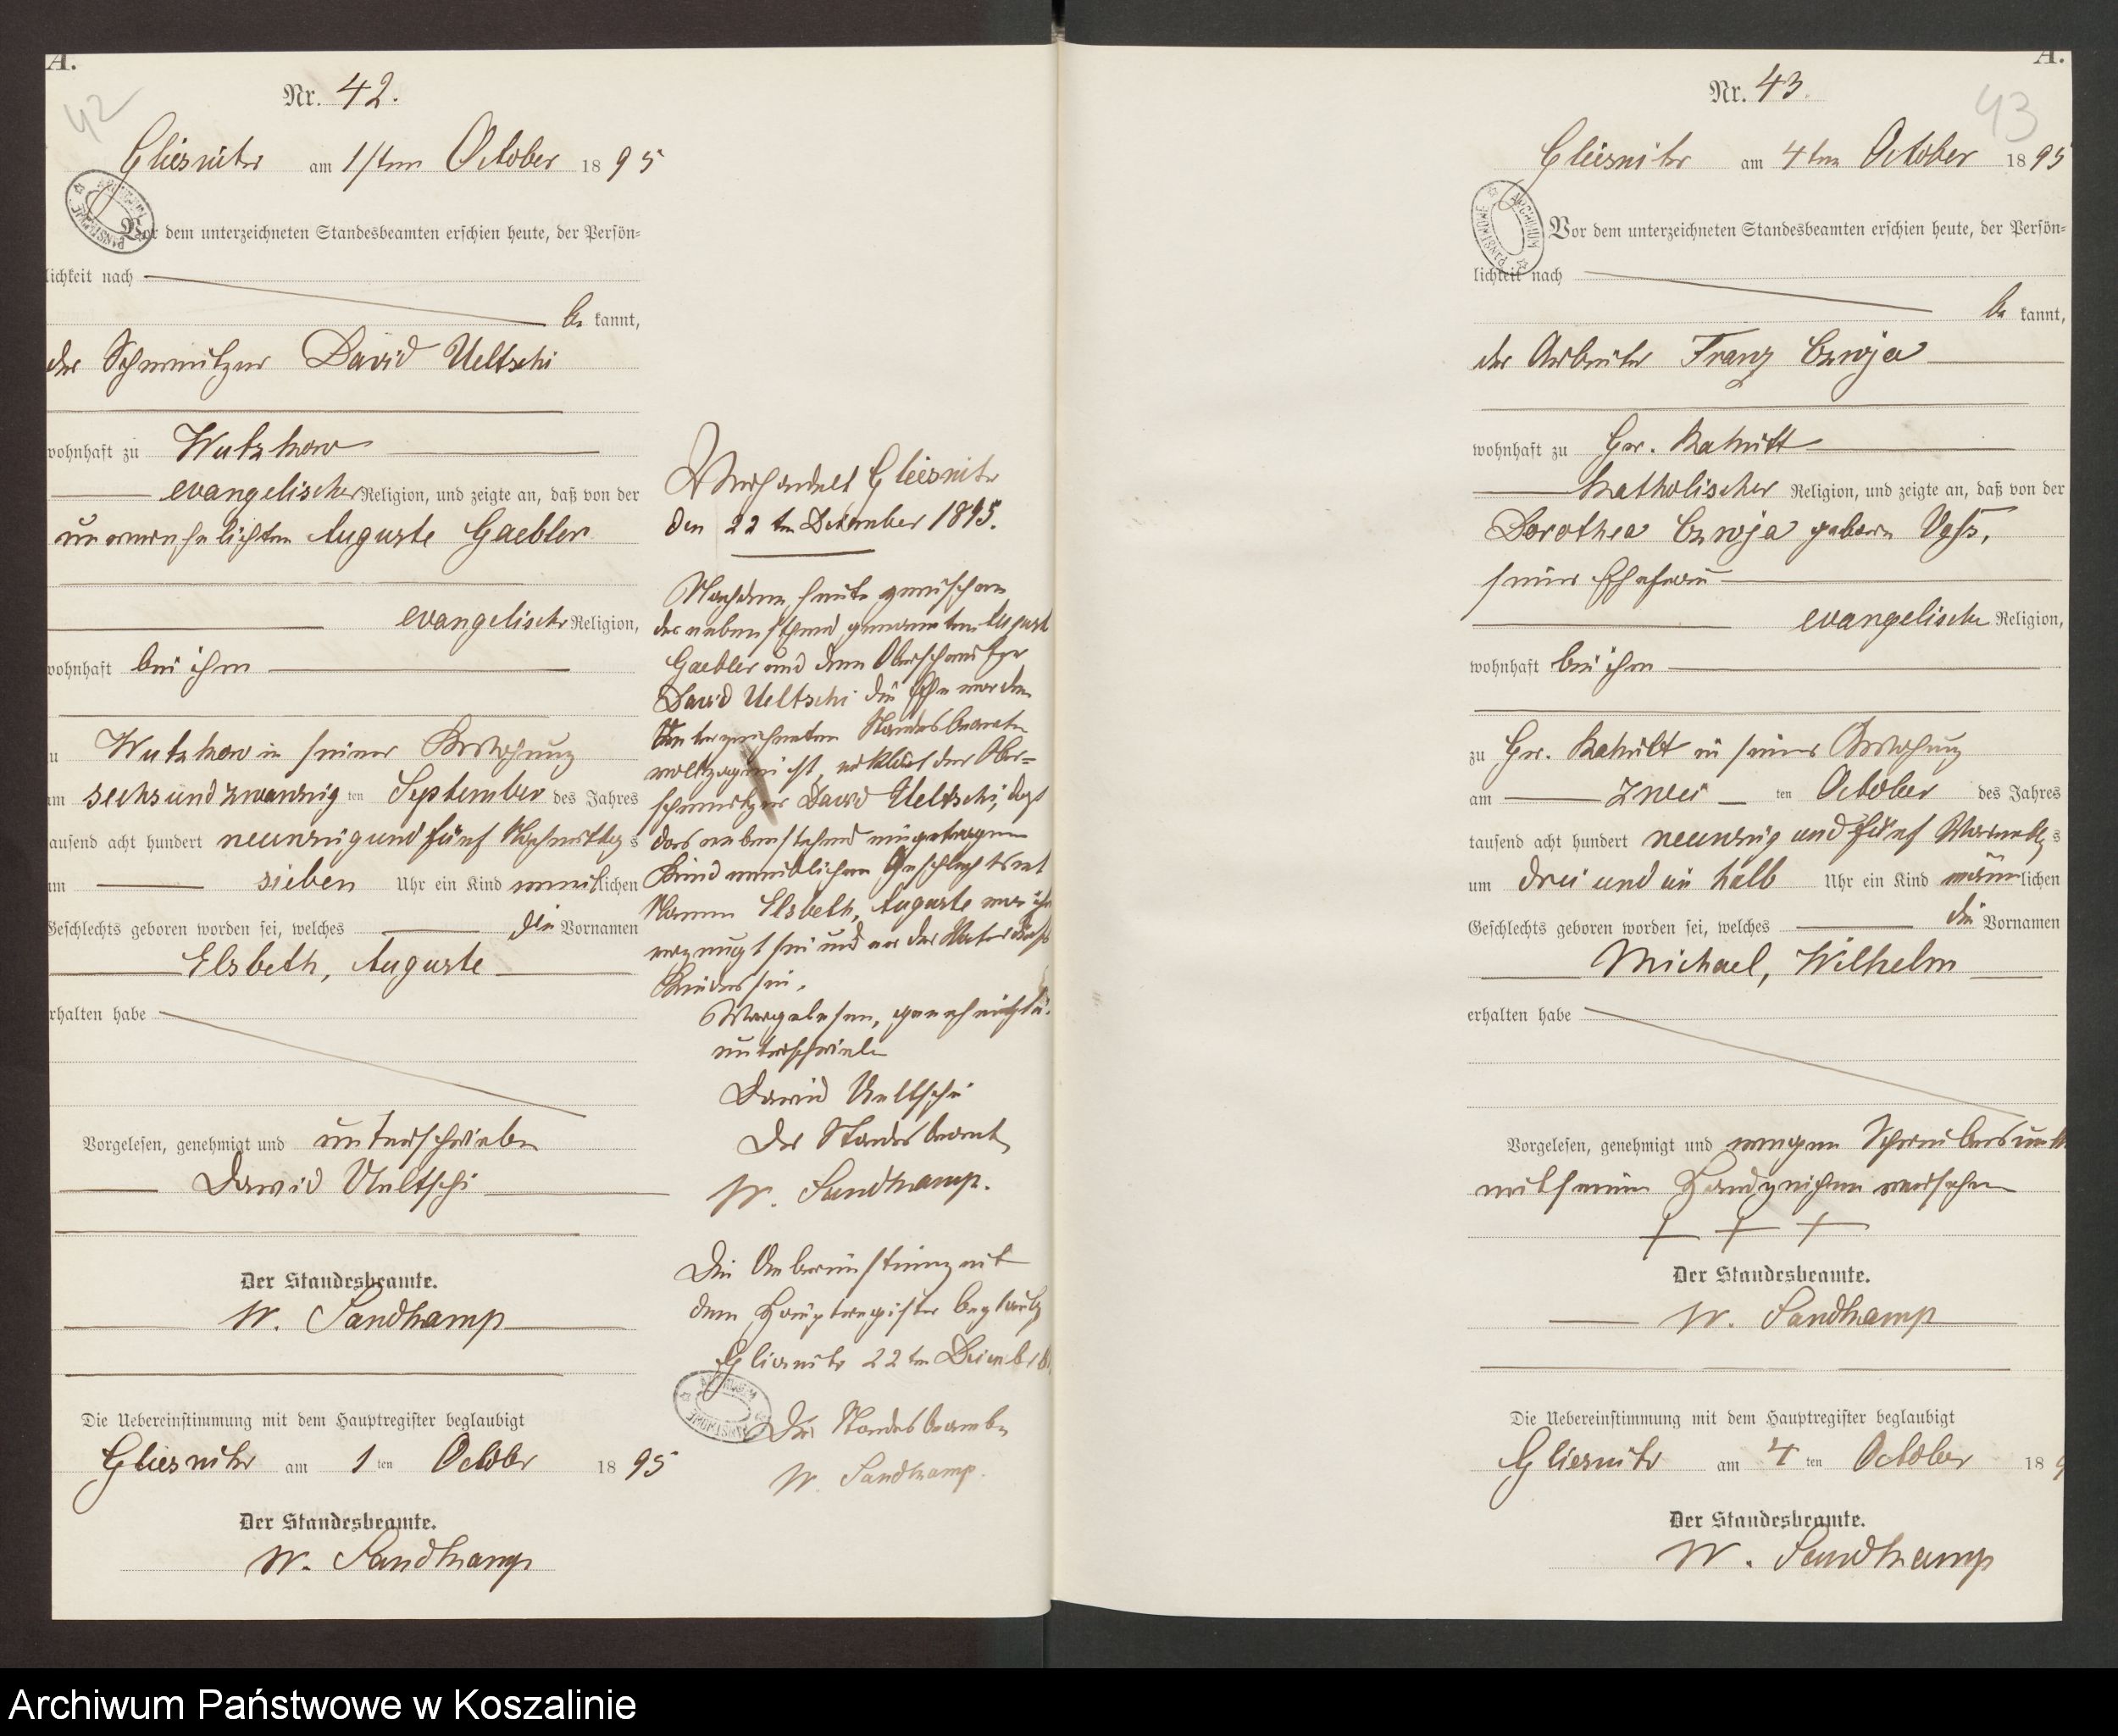 A.
42
Nr. 42.
Gliesnitz am 1sten October 1895
Vor dem unterzeichneten Standesbeamten erschien heute, der Persön=
lichkeit nach
be kannt,
der Schweitzer David Ueltschi
wohnhaft zu Wutzkow
evangelischer Religion, und zeigte an, daß von der
unverehelichten Auguste Gaebler
evangelischer Religion,
wohnhaft bei ihm
zu Wutzkow in seiner Behausung
am sechsundzwanzig ten September des Jahres
tausend acht hundert neunzig und fünf Nachmittags
um sieben Uhr ein Kind weiblichen
Geschlechts geboren worden sei, welches die Vornamen
Elsbeth, Auguste
erhalten habe
Vorgelesen, genehmigt und unterschrieben
David Ueltschi
Der Standesbeamte.
W. Sandkamp
Die Uebereinstimmung mit dem Hauptregister beglaubigt
Gliesnitz am 1 ten October 1895
Der Standesbeamte.
W. Sandkamp
Verhandelt Gliesnitz
den 22ten Dezember 1895.
Nachdem heute zwischen
der nebenstehend genannten August
Gaebler und dem Oberschweitzer
David Ueltschi die Ehe vor dem
Unterzeichneten Standesbeamten
vollzogen ist, erklärt der Ober=
schweitzer David Ueltschi, daß
das nebenstehend eingetragene
Kind weiblichen Geschlechts mit
Namen Elsbeth, Auguste von ihm
erzeugt sei und er der Vater dieses
Kindes sei.
Vorgelesen, genehmigt u.
unterschrieben
David Ueltschi
Der Standesbeamte
W. Sandkamp.
Die Uebereinstimmung mit
dem Hauptregister beglaubigt
Gliesnitz 22ten Dezemb
Der Standesbeamte
W. Sandkamp.
ARCHIWUM PAŃSTWOWE
A.
43
Nr. 43.
Gliesnitz am 4ten October 1895
Vor dem unterzeichneten Standesbeamten erschien heute, der Persön=
lichkeit nach
be kannt,
der Arbeiter Franz Czwoja
wohnhaft zu Gr. Rakitt
katholischer Religion, und zeigte an, daß von der
Dorothea Czwoja geborne Voß,
seiner Ehefrau
evangelischer Religion,
wohnhaft bei ihm
zu Gr. Rakitt in seiner Behausung
am zwei ten October des Jahres
tausend acht hundert neunzig und fünf Vormittags
um drei und ein halb Uhr ein Kind männlichen
Geschlechts geboren worden sei, welches die Vornamen
Michael, Wilhelm
erhalten habe
Vorgelesen, genehmigt und wegen Schreibens unk
mit seinem Handzeichen versehen
+ + +
Der Standesbeamte.
W. Sandkamp
Die Uebereinstimmung mit dem Hauptregister beglaubigt
Gliesnitz am 4 ten October 189
Der Standesbeamte.
W. Sandkamp
ARCHIWUM PAŃSTWOWE
Archiwum Państwowe w Koszalinie